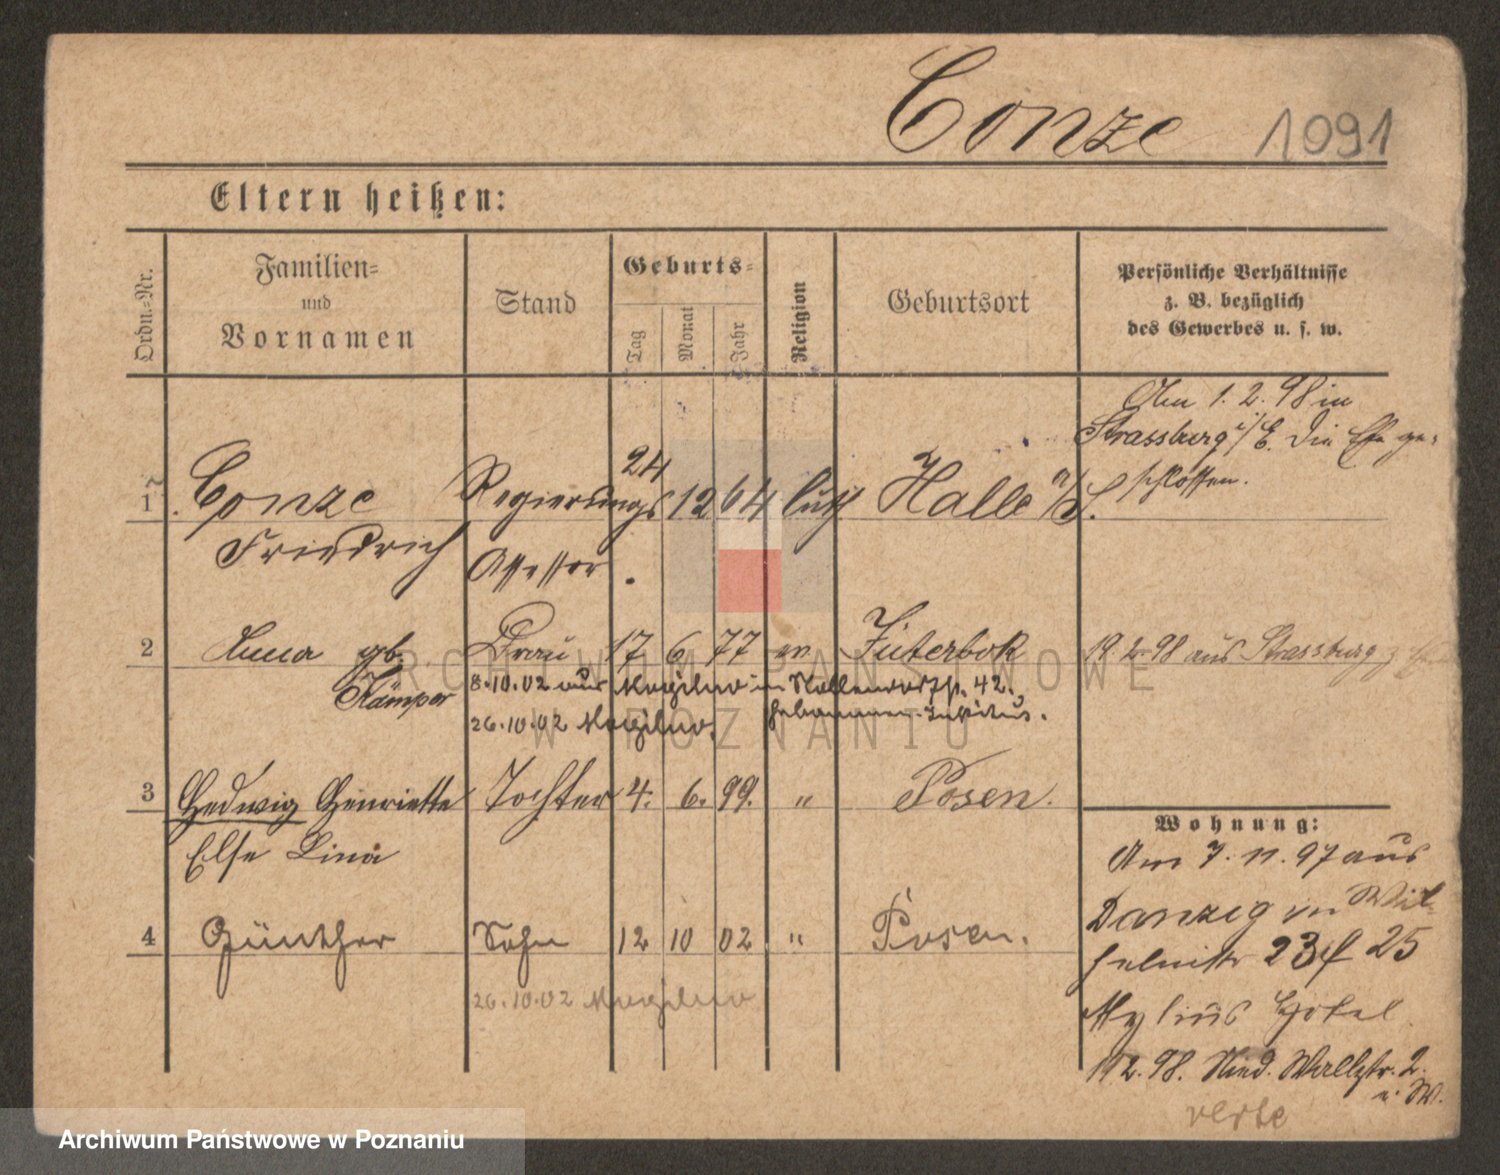 Conze 1091
Eltern heißen:
Ordn.-Nr.
Familien-
und
Vornamen
Stand
Geburts-
Tag
Monat
Jahr
Religion
Geburtsort
Persönliche Verhältnisse
z. B. bezüglich
des Gewerbes u. s. w.
Am 1. 2. 98 in
Strassburg i/E. die Ehe ge-
schlossen.
1 Conze Regierungs 24 12 64 luth Halle a/S.
Friedrich Assessor
2 Anna gb. Frau 17 6 77 ev. Jüterbok 19.2.98 aus Strassburg
Kämper
8.10.02 aus Mogilno in 42.
26.10.02 Mogilno. Hebammen-Institut.
3 Hedwig Henriette Tochter 4. 6. 99. " Posen.
Else Lina
4 Günther Sohn 12 10 02 " Posen.
26.10.02 Mogilno
Wohnung:
Am 7. 11. 97 aus
Danzig in Wil-
helmstr 23 25
Mylius Hotel
2.98. Nied. Wallstr. 2.
u. W.
verte
ARCHIWUM PAŃSTWOWE
W POZNANIU
Archiwum Państwowe w Poznaniu